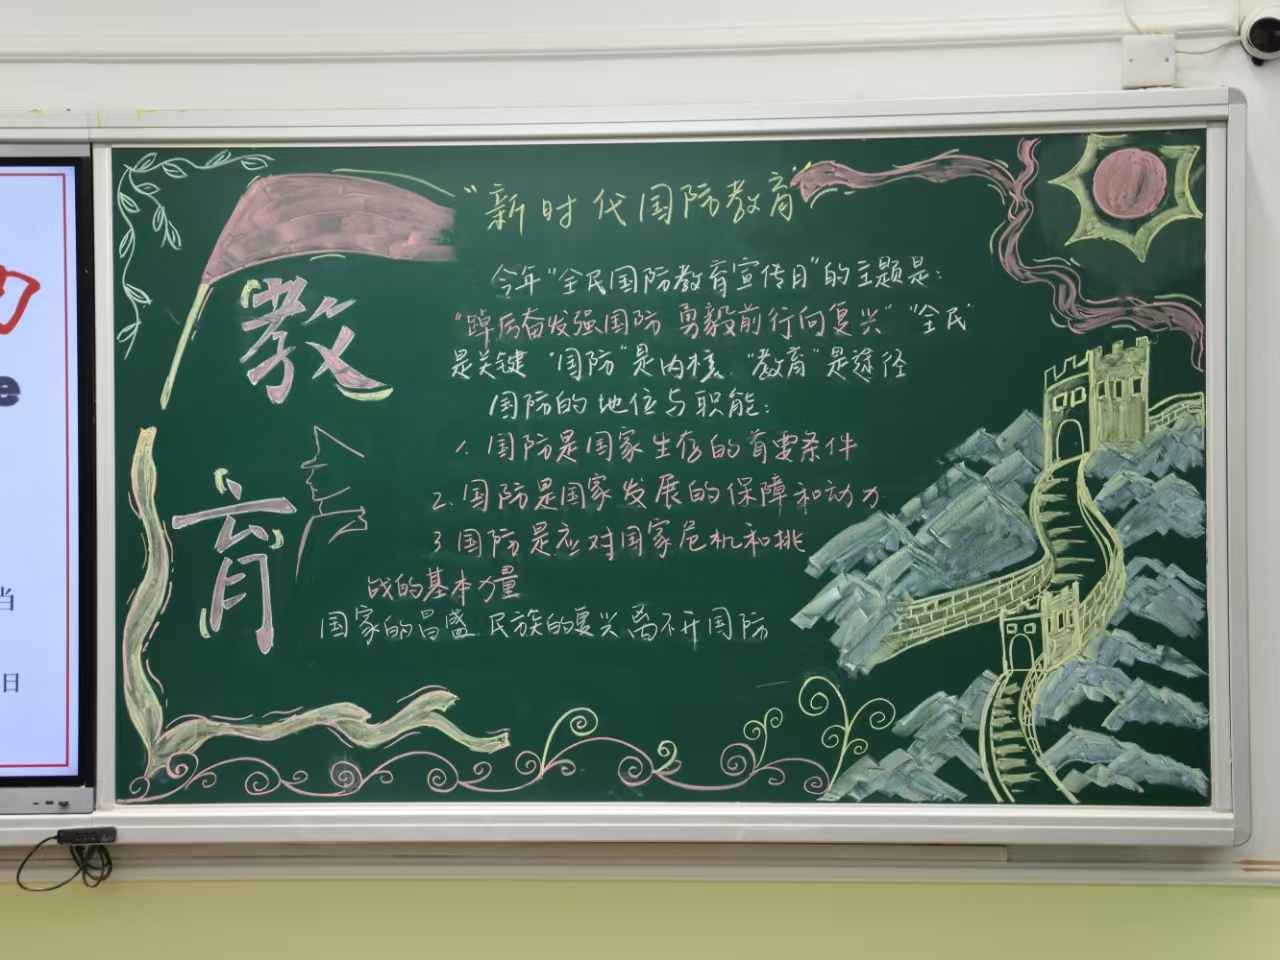 "新时代国防教育"
教育
今年"全民国防教育宣传日"的主题是:
"踔厉奋发强国防 勇毅前行向复兴" "全民"
是关键 "国防"是内核 "教育"是途径
国防的地位与职能:
1. 国防是国家生存的首要条件
2. 国防是国家发展的保障和动力
3 国防是应对国家危机和挑
战的基本力量
国家的昌盛 民族的复兴离不开国防
当
日